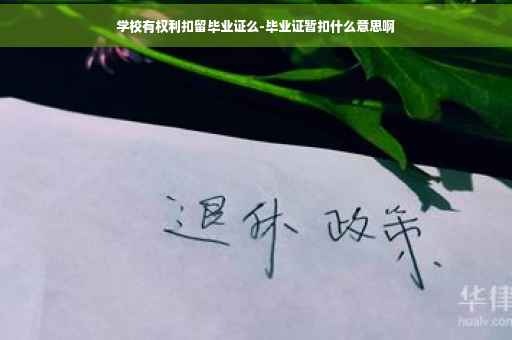 学校有权利扣留毕业证么-毕业证暂扣什么意思啊
退休 政策
华律
hualv.com